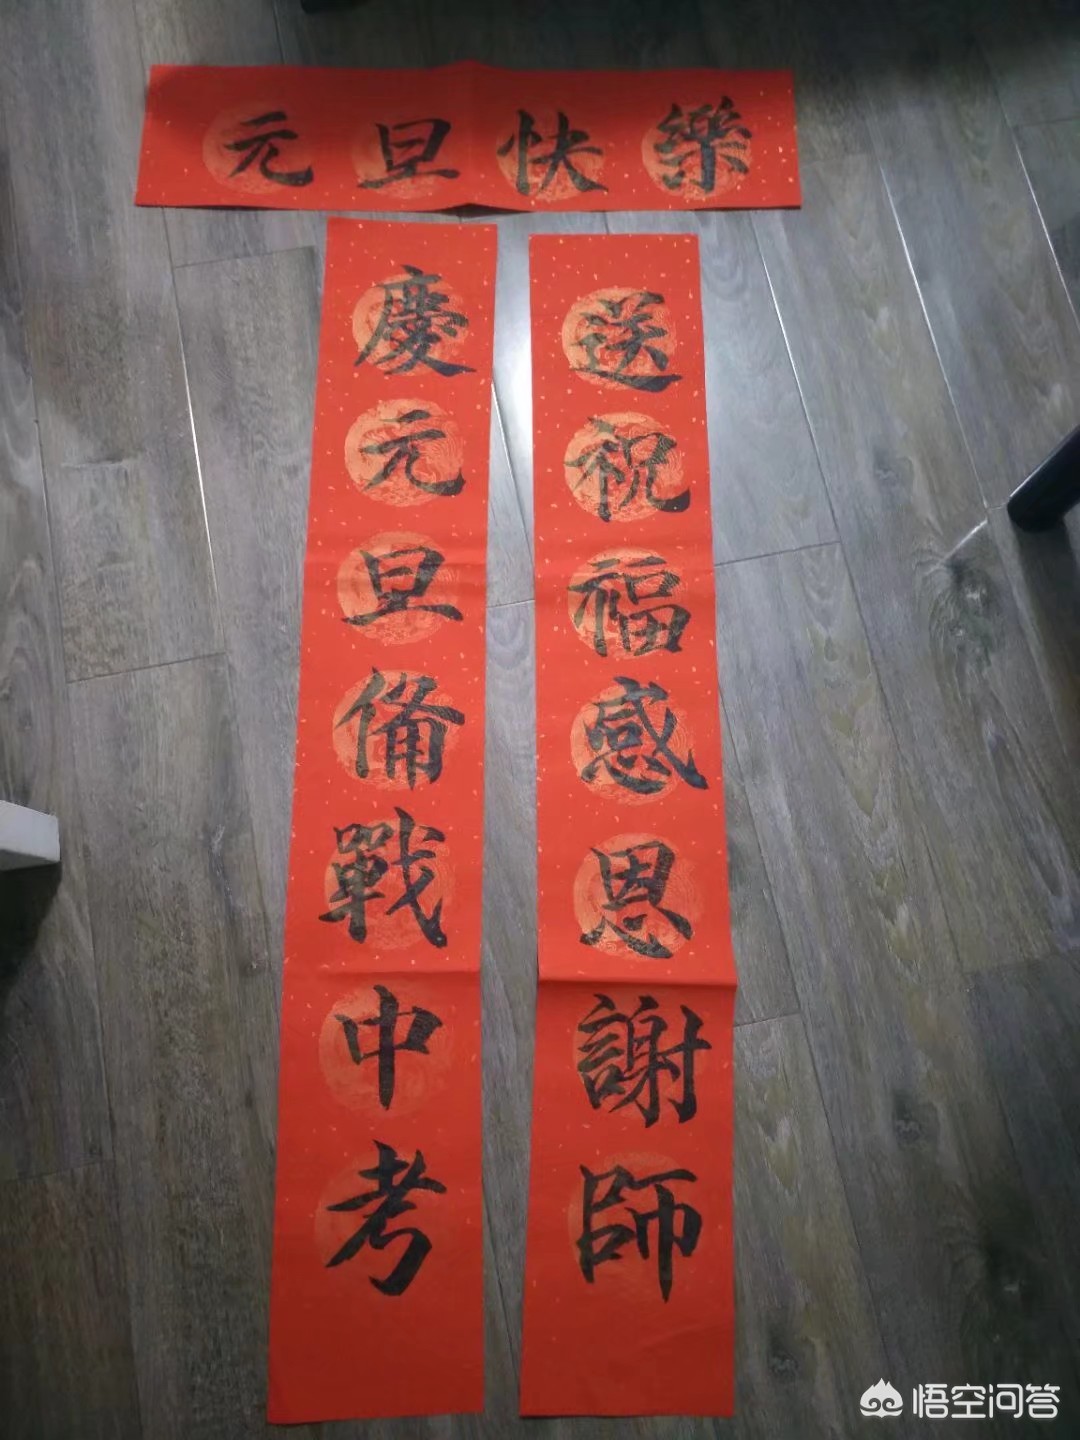 元旦快樂
慶元旦備戰中考
送祝福感恩謝師
悟空问答